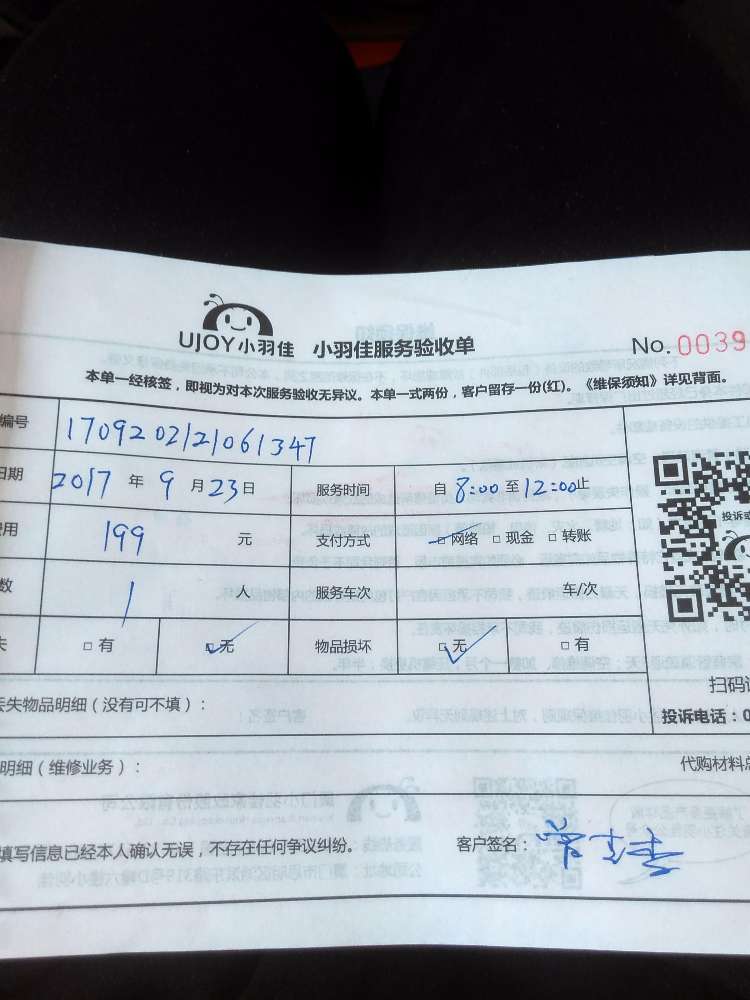 UJOY小羽佳 小羽佳服务验收单 No.0039
本单一经核签，即视为对本次服务验收无异议。本单一式两份，客户留存一份(红)。《维保须知》详见背面。
编号 1709202121061347
日期 2017 年 9 月 23 日 服务时间 自 8:00 至 12:00 止
费用 199 元 支付方式 □ 网络 □ 现金 □ 转账
数 1 人 服务车次 车/次
失 □ 有 □ 无 物品损坏 □ 无 □ 有
投诉
丢失物品明细（没有可不填）：
扫码
投诉电话：0
明细（维修业务）：
代购材料总
填写信息已经本人确认无误，不存在任何争议纠纷。 客户签名：